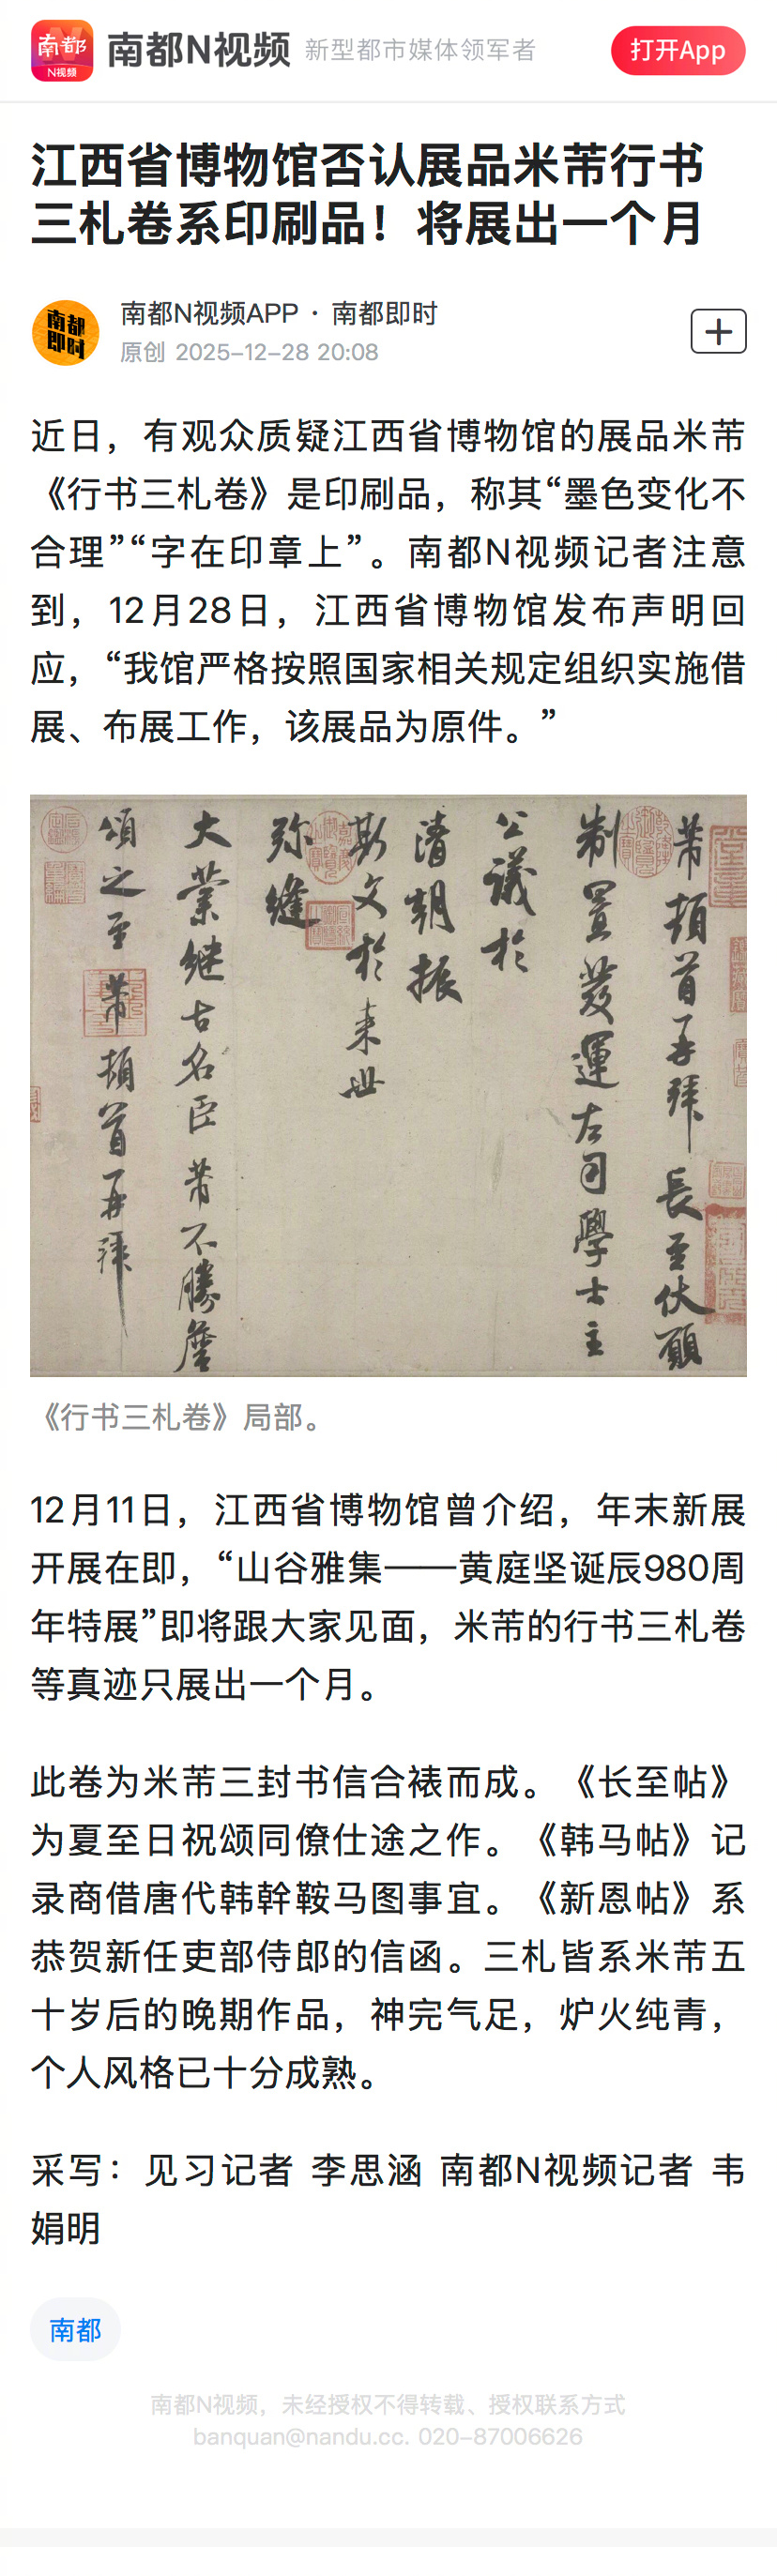 南都
N视频
南都N视频 新型都市媒体领军者
打开App
江西省博物馆否认展品米芾行书
三札卷系印刷品！将展出一个月
南都
即时
南都N视频APP · 南都即时
原创 2025-12-28 20:08
近日，有观众质疑江西省博物馆的展品米芾
《行书三札卷》是印刷品，称其“墨色变化不
合理”“字在印章上”。南都N视频记者注意
到，12月28日，江西省博物馆发布声明回
应，“我馆严格按照国家相关规定组织实施借
展、布展工作，该展品为原件。”
芾頓首再拜長至伏願
制置發運左司學士主
公議於
清朝振
斯文於来世
弥縫
大業継古名臣芾不勝詹
頌之至芾頓首再拜
《行书三札卷》局部。
12月11日，江西省博物馆曾介绍，年末新展
开展在即，“山谷雅集——黄庭坚诞辰980周
年特展”即将跟大家见面，米芾的行书三札卷
等真迹只展出一个月。
此卷为米芾三封书信合裱而成。《长至帖》
为夏至日祝颂同僚仕途之作。《韩马帖》记
录商借唐代韩幹鞍马图事宜。《新恩帖》系
恭贺新任吏部侍郎的信函。三札皆系米芾五
十岁后的晚期作品，神完气足，炉火纯青，
个人风格已十分成熟。
采写：见习记者 李思涵 南都N视频记者 韦
娟明
南都
南都N视频，未经授权不得转载、授权联系方式
banquan@nandu.cc. 020-87006626